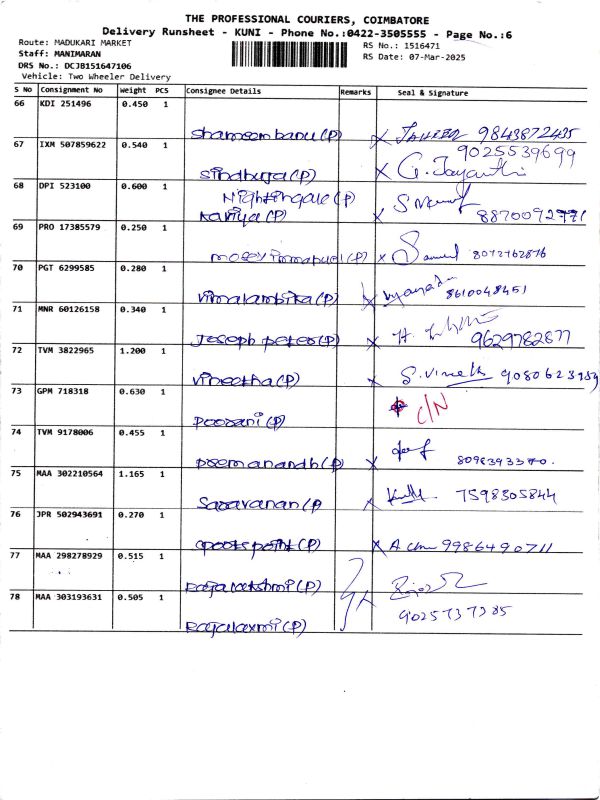 THE PROFESSIONAL COURIERS, COIMBATORE
Delivery Runsheet - KUNI - Phone No.:0422-3505555 - Page No.:6
Route: MADUKARI MARKET
RS No.: 1516471
Staff: MANIMARAN
RS Date: 07-Mar-2025
DRS No.: DCJB151647106
Vehicle: Two Wheeler Delivery
S No Consignment No Weight PCS Consignee Details Remarks Seal & Signature
66 KDI 251496 0.450 1
Shameem banu (P) X 9843872435
67 IXM 507859622 0.540 1
9025539699
Sindhuja (P) X G. Jayanthi
68 DPI 523100 0.600 1
Nightingale (P)
Kaviya (P) X 8870092771
69 PRO 17385579 0.250 1
(P) X Samuel 8072762876
70 PGT 6299585 0.280 1
Vimalambika (P) 8610048451
71 MNR 60126158 0.340 1
Joseph peter (P) X 9629782877
72 TVM 3822965 1.200 1
Vineetha (P) X 9080623959
73 GPM 718318 0.630 1
C/N
Poorani (P)
74 TVM 9178006 0.455 1
Poemanandh (P) X 8098393370.
75 MAA 302210564 1.165 1
Saravanan (P X 7598305844
76 JPR 502943691 0.270 1
(P) X 9986490711
77 MAA 298278929 0.515 1
Rajalakshmi (P)
78 MAA 303193631 0.505 1
9025737385
Rajalaxmi (P)